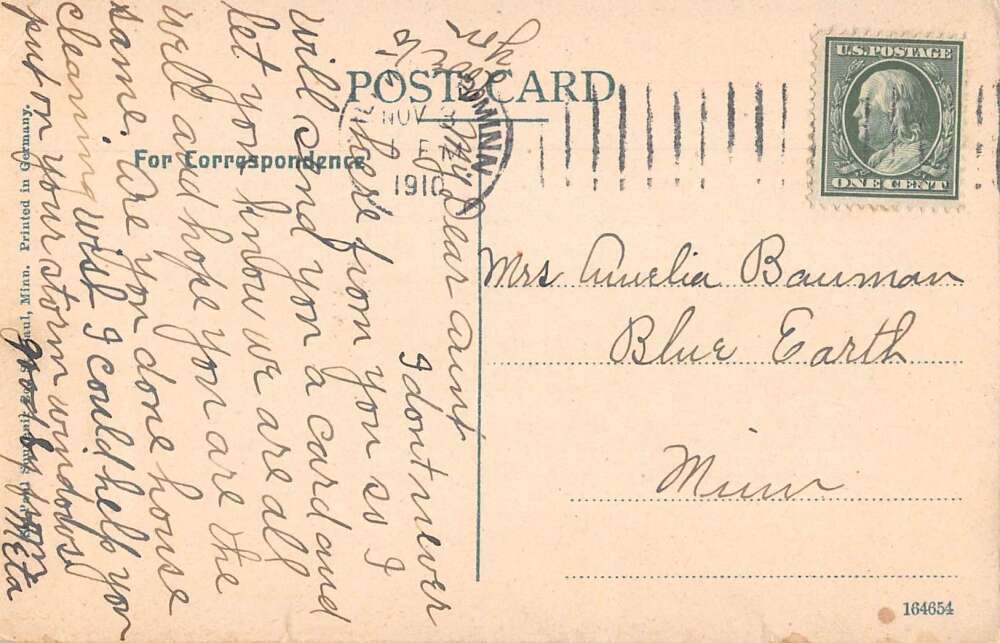 POST CARD
For Correspondence
U.S. POSTAGE
ONE CENT
MINN
NOV
1910
Mrs Amelia Bauman
Blue Earth
Minn
My Dear aunt
I dont never
here from you so I
will send you a card and
let you know we are all
well and hope you are the
same. are you done house
cleaning wish I could help you
put on your storm windows
good by Meta
Paul, Minn. Printed in Germany.
164654